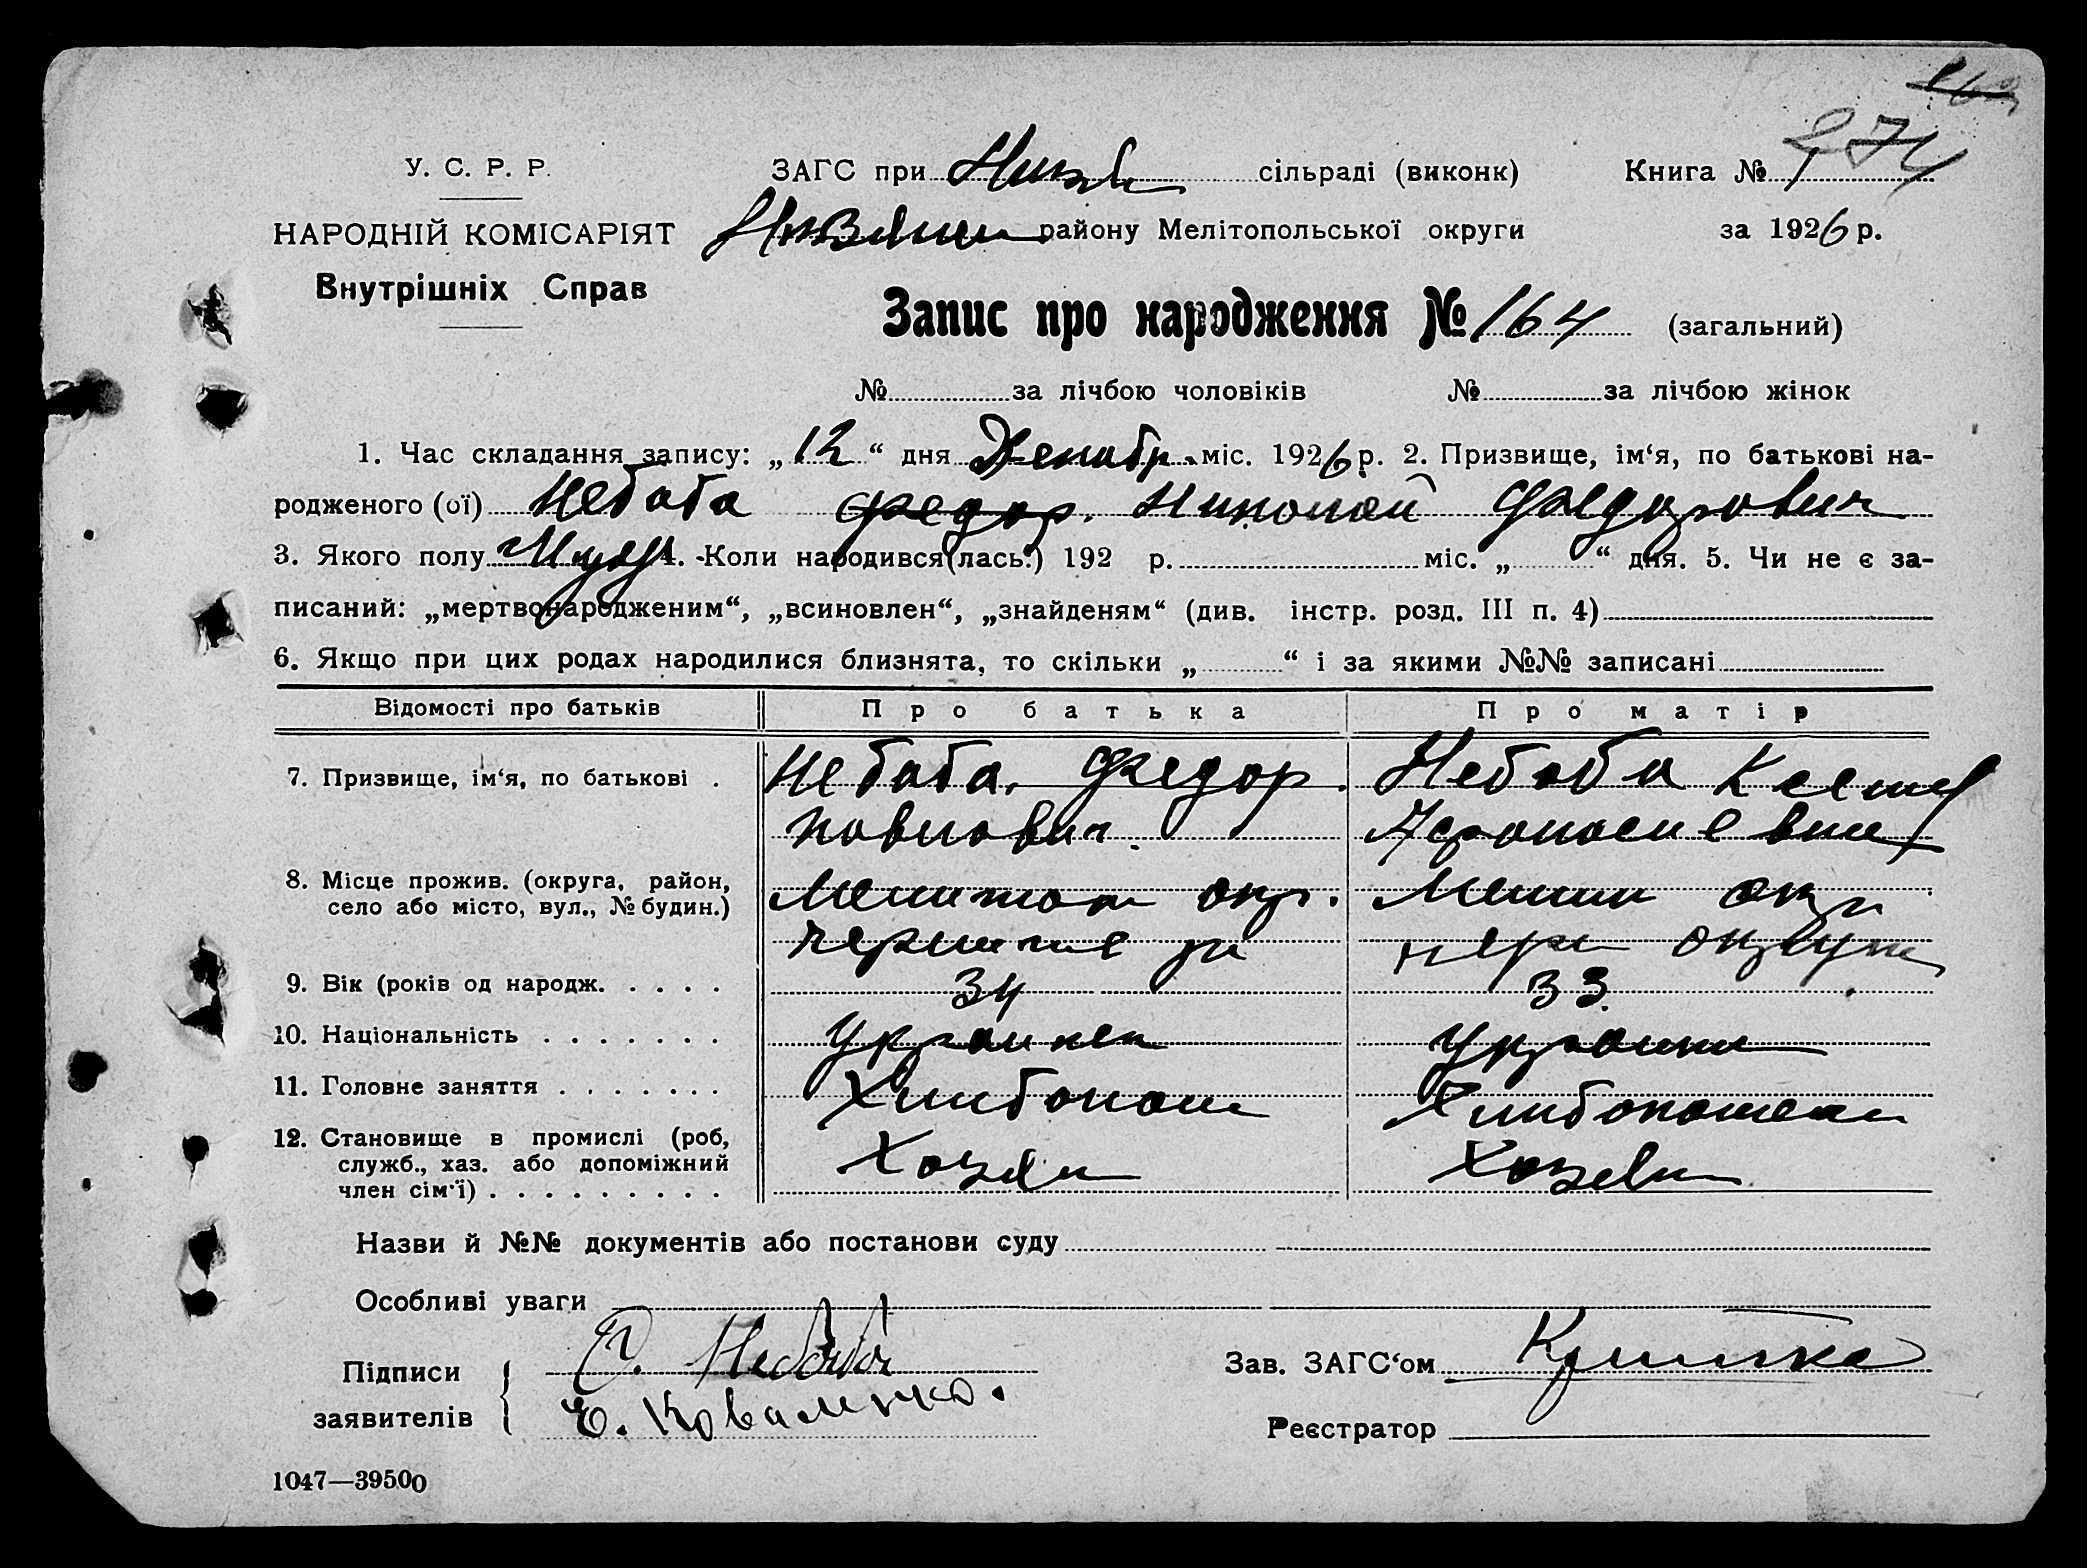 174
У. С. Р. Р.
ЗАГС при сільраді (виконк) Книга №
НАРОДНІЙ КОМІСАРІЯТ
району Мелітопольської округи за 1926 р.
Внутрішніх Справ
Запис про народження № 164 (загальний)
№ за лічбою чоловіків № за лічбою жінок
1. Час складання запису: „12“ дня Декабр. міс. 1926 р. 2. Призвище, ім‘я, по батькові на-
родженого (ої) Небаба Федор. Николай Федорович
3. Якого полу Муж 4. Коли народився(лась.) 192 р. міс. „ “ дня. 5. Чи не є за-
писаний: „мертвонародженим“, „всиновлен“, „знайденям“ (див. інстр. розд. III п. 4)
6. Якщо при цих родах народилися близнята, то скільки „ “ і за якими №№ записані
Відомості про батьків Про батька Про матір
7. Призвище, ім‘я, по батькові . Небаба Федор. Небаба
Павлович.
8. Місце прожив. (округа, район, Мелитоп окр. Мелит окр
село або місто, вул., № будин.)
9. Вік (років од народж. . . . . 34 33
10. Національність . . . . . . . Украинец Украинка
11. Головне заняття . . . . . . . Хлибопаш
12. Становище в промислі (роб, Хозяин
служб., хаз. або допоміжний
член сім‘ї) . . . . . . . . .
Назви й №№ документів або постанови суду
Особливі уваги
Підписи Небаба Зав. ЗАГС‘ом
заявителів Е. Коваленко. Реєстратор
1047—39500